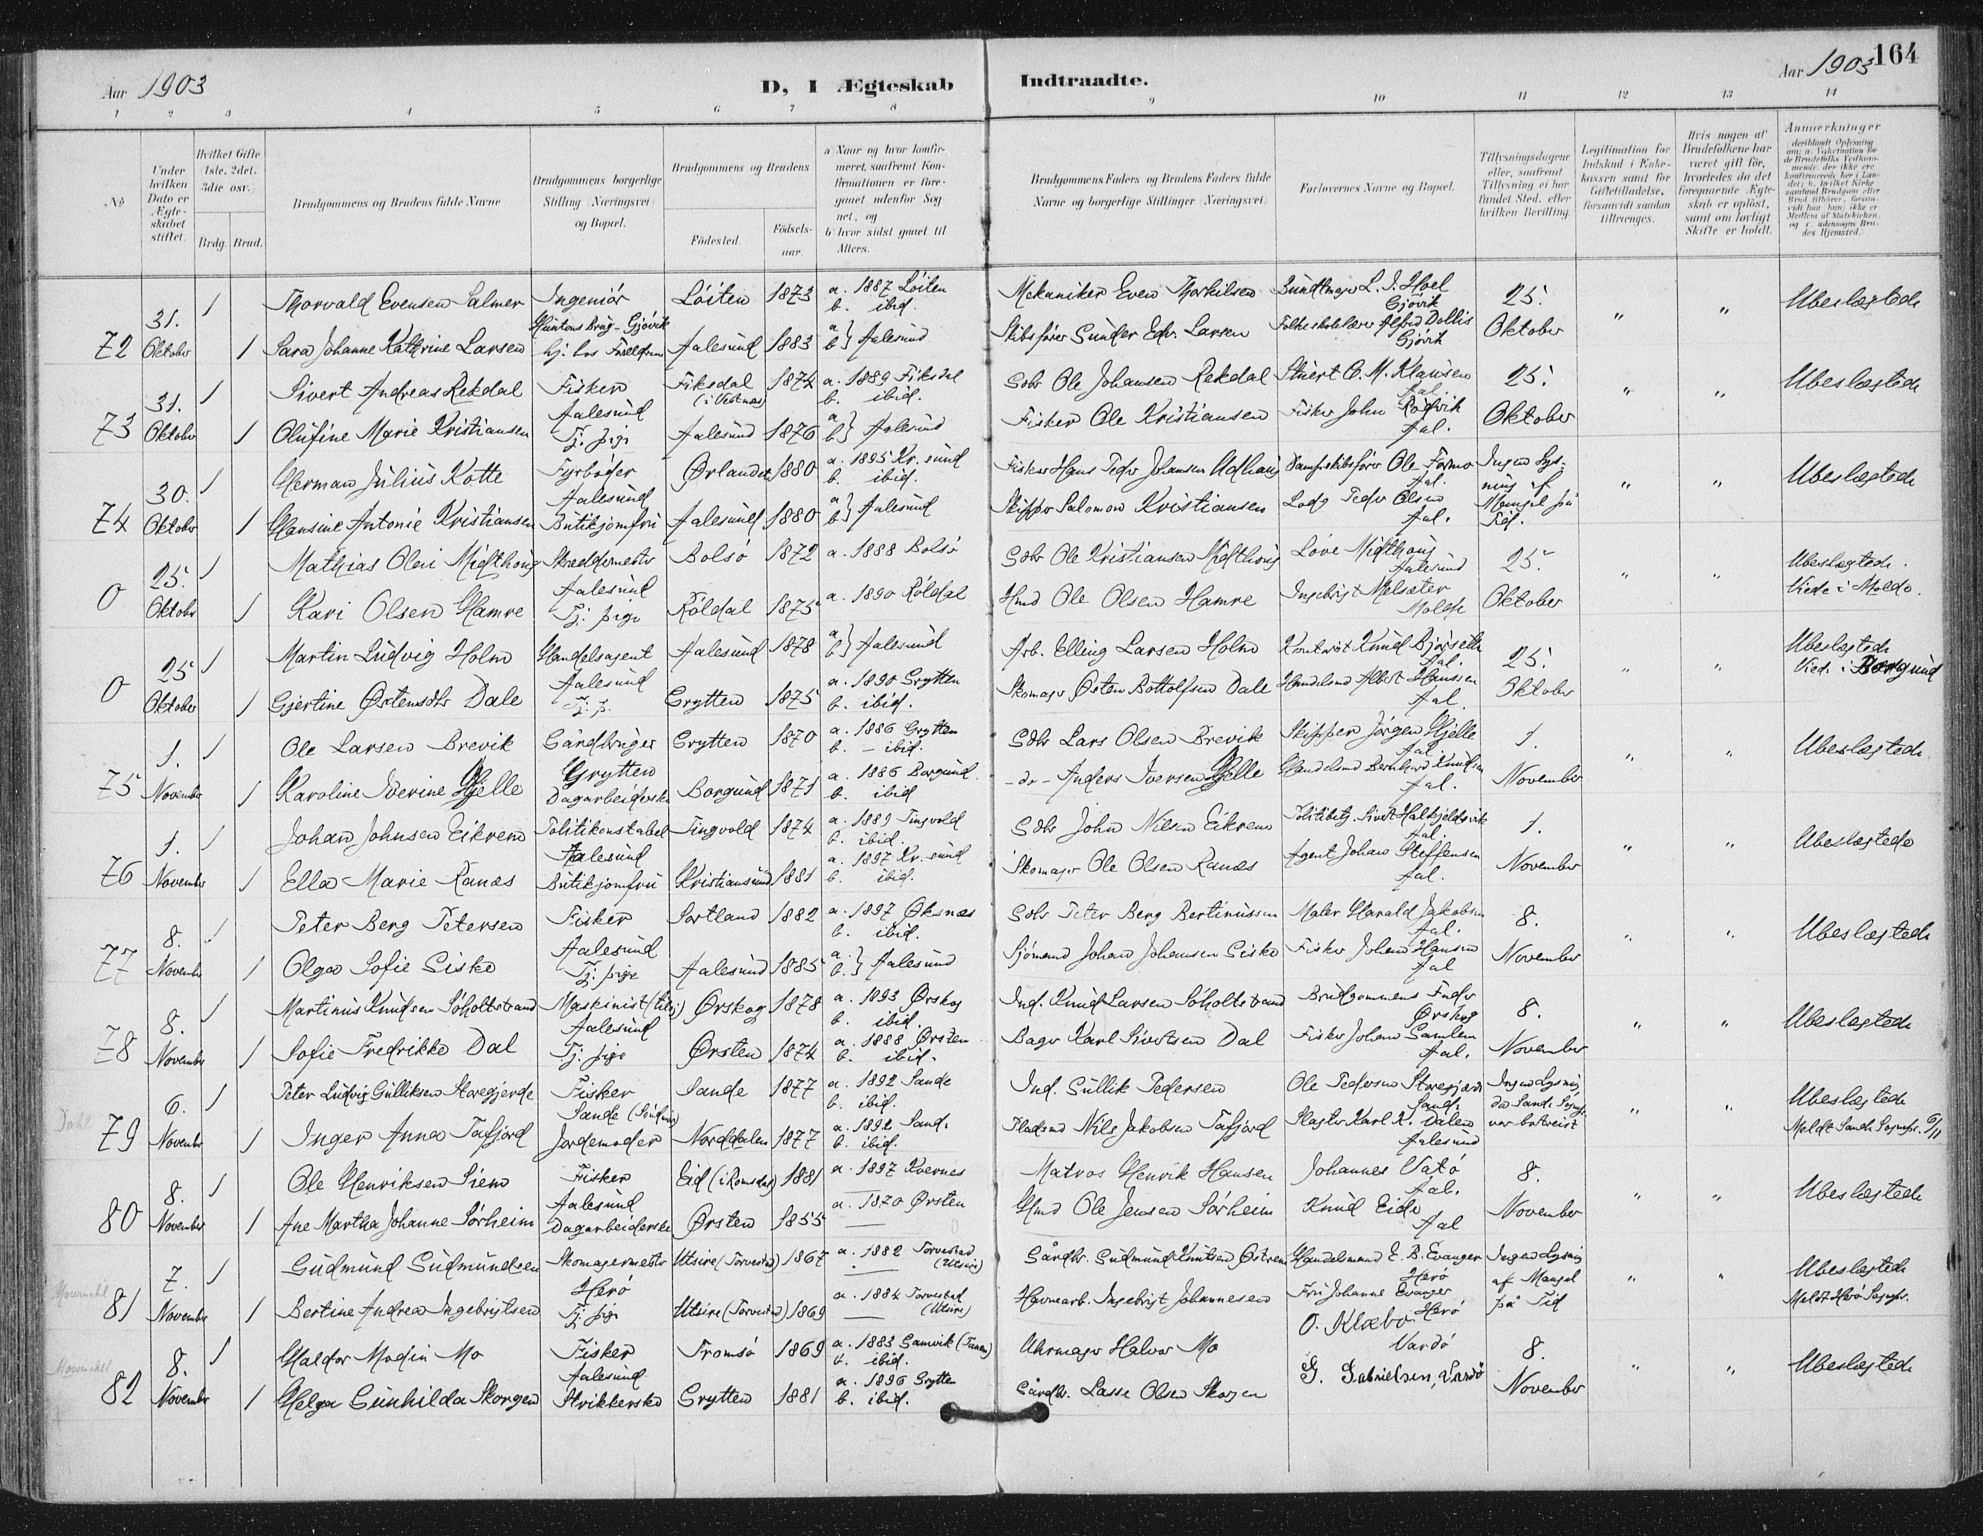 Aar 1903
D, I Ægteskab Indtraadte.
Aar 1903 164
1 2 3 4 5 6 7 8 9 10 11 12 13 14
No
Under hvilken Dato er Ægteskabet stiftet.
Hvilket Gifte (1ste, 2det, 3die osv.)
Brdg. Brud.
Brudgommens og Brudens fulde Navne
Brudgommens borgerlige Stilling (Næringsvei) og Bopæl.
Brudgommens og Brudens
Fødested.
Fødselsaar
a) Naar og hvor konfirmeret, saafremt Konfirmationen er foregaaet udenfor Sognet, og
b) hvor sidst gaaet til Alters.
Brudgommens Faders og Brudens Faders fulde Navne og borgerlige Stillinger (Næringsvei)
Forlovernes Navne og Bopæl.
Tillysningsdagene eller, saafremt Tillysning ei har fundet Sted, efter hvilken Bevilling.
Legitimation for Indskud i Enkekassen samt for Giftetilladelse, forsaavidt saadan tiltrænges.
Hvis nogen af Brudefolkene har været gift før, hvorledes da det foregaaende Ægteskab er opløst, samt om lovligt Skifte er holdt.
Anmærkninger
72 31. Oktober 1 Thorvald Evensen Salmer Ingeniør Løiten 1873 a. 1887 Løiten b. ibid. Mekaniker Even Thorkilsen L. J. Hoel Gjøvik 25. Oktober " " Ubeslægtede
1 Sara Johanne Kathrine Larsen Huntons Brug - Gjøvik hj. hos Forældrene Aalesund 1883 a b} Aalesund Skibsfører Sunder Edv. Larsen Folkeskolelærer Alfred Dollis Gjøvik
73 31. Oktober 1 Sivert Andreas Rekdal Fisker Aalesund Fiksdal (i Vestnes) 1874 a. 1889 Fiksdal b. ibid. Gdbr Ole Johansen Rekdal Stuert O. M. Klausen Aal. 25. Oktober " " Ubeslægtede
1 Olufine Marie Kristiansen Tj. pige Aalesund 1876 a b} Aalesund Fisker Ole Kristiansen Fisker John Rødvik Aal.
74 30. Oktober 1 Herman Julius Kotte Fyrbøder Aalesund Ørlandet 1880 a. 1895 Kr.sund b. ibid. Fisker Hans Peder Johansen Udhaug Dampskibsfører Ole Formo Aal. Ingen Lysning af Mangel på Tid. " " Ubeslægtede
1 Hansine Antonie Kristiansen Butikjomfru Aalesund 1880 a b} Aalesund Skipper Salomon Kristiansen Lods Peder Olsen Aal.
0 25. Oktober 1 Mathias Oleri Midthaug Skreddermester Aalesund Bolsø 1872 a. 1888 Bolsø Gdbr Ole Kristiansen Midthaug Love Midthaug Aalesund 25. Oktober " " Ubeslægtede. Viede i Molde.
1 Kari Olsen Hamre Tj. pige Røldal 1875 a. 1890 Røldal Hmd Ole Olsen Hamre Ingebrigt Melsæter Molde
0 25 Oktober 1 Martin Ludvig Holm Handelsagent Aalesund Aalesund 1878 a b} Aalesund Arb. Elling Larsen Holm Kontorist Knud Bjørseth Aal. 25. Oktober " " Ubeslægtede Viede i Borgund
1 Gjertine Østensdtr Dale Tj. p. Grytten 1875 a. 1890 Grytten b. ibid. Skomager Østen Bottolfsen Dale Handelsmd Albert Hanssen Aal.
75 1. November 1 Ole Larsen Brevik Gårdbruger Grytten Grytten 1870 a. 1886 Grytten b. - ibid. Gdbr Lars Olsen Brevik Skipper Jørgen Hjelle Aal. 1. November " " Ubeslægtede
1 Karoline Iverine Hjelle Dagarbeiderske Borgund 1871 a. 1886 Borgund b. ibid -do- Anders Iversen Hjelle Handelsmd Bernhard Knudsen Aal.
76 1. November 1 Johan Johnsen Eikrem Politikonstabel Aalesund Tingvold 1874 a. 1889 Tingvold b. ibid. Gdbr John Nilsen Eikrem Politibetj. Sivert Halkjeldsvik Aal. 1. November " " Ubeslægtede
1 Ella Marie Ranes Butikjomfru Kristiansund 1881 a. 1897 Kr.sund b. ibid. Skomager Ole Olsen Ranes Agent Johan Steffensen Aal.
77 8. November 1 Peter Berg Petersen Fisker Aalesund Sortland 1882 a. 1897 Øksnes b. ibid. Gdbr Peter Berg Bertinussen Maler Harald Jakobsen Aal. 8. November " " Ubeslægtede
1 Olga Sofie Giske Tj. pige Aalesund 1885 a. b.} Aalesund Sjømand Johan Johansen Giske Fisker Johan Hansen Aal
78 8. November 1 Martinus Knudsen Søholtstrand Maskinist Aalesund Ørskog 1878 a. 1893 Ørskog b. ibid. Ind. Knud Larsen Søholtstrand Brudgommens Fader Ørskog 8. November " " Ubeslægtede
1 Sofie Fredrikke Dal Tj. pige Ørsten 1874 a. 1888 Ørsten b. ibid. Bager Karl Sivertsen Dal Fisker Johan Samlem Aal.
Dahl
79 6. November 1 Peter Ludvig Gulliksen Storegjerde Fisker Sande (Søndmør) Sande 1877 a. 1892 Sande b. ibid. Ind. Gullik Pedersen Ole Pedersen Storegjerde Sande Ingen Lysning da Sande Sognepr. var bortreist " " Ubeslægtede Meldt Sande Sognepr. 6/11
1 Inger Anna Tafjord Jordemoder Norddalen 1877 a. 1892 Sande b. ibid. Pladsmd Nils Jakobsen Tafjord Slagter Karl K. Dalen Aalesund
80 8. November 1 Ole Henriksen Siem Fisker Aalesund Eid (i Romsdal) 1881 a. 1897 Kvernes Matros Henrik Hansen Johannes Vatø Aal. 8. November " " Ubeslægtede
1 Ane Martha Johanne Sørheim Dagarbeiderske Ørsten 1855 a. 1870 Ørsten Hmd Ole Jensen Sørheim Knud Eide Aal
Mowinckel
81 7. November 1 Gudmund Gudmundsen Skomagermester Herø Utsire (Torvestad) 1867 a. 1882 Torvestad (Utsire) Gårdbr. Gudmund Knutsen Østrem Handelsmand E. B. Evanger Herø Ingen Lysning af Mangel på Tid " " Ubeslægtede Meldt Herø Sognepr.
1 Bertine Andrea Ingebrigtsen Tj. pige Utsire (Torvestad) 1869 a. 1884 Torvestad (Utsire) Havnearb. Ingebrigt Johannesen Fru Johanne Evanger Herø
Mowinckel
82 8. November 1 Haldor Modin Mo Fisker Aalesund Tromsø 1869 a. 1883 Gamvik (Tanen) b. ibid. Uhrmager Halvor Mo O. Klæbo Vardø 8. November " " Ubeslægtede
1 Helga Gunhilda Skorgen Strikkerske Grytten 1881 a. 1896 Grytten b. ibid. Gårdbr. Lasse Olsen Skorgen G. Gabrielsen, Vardø